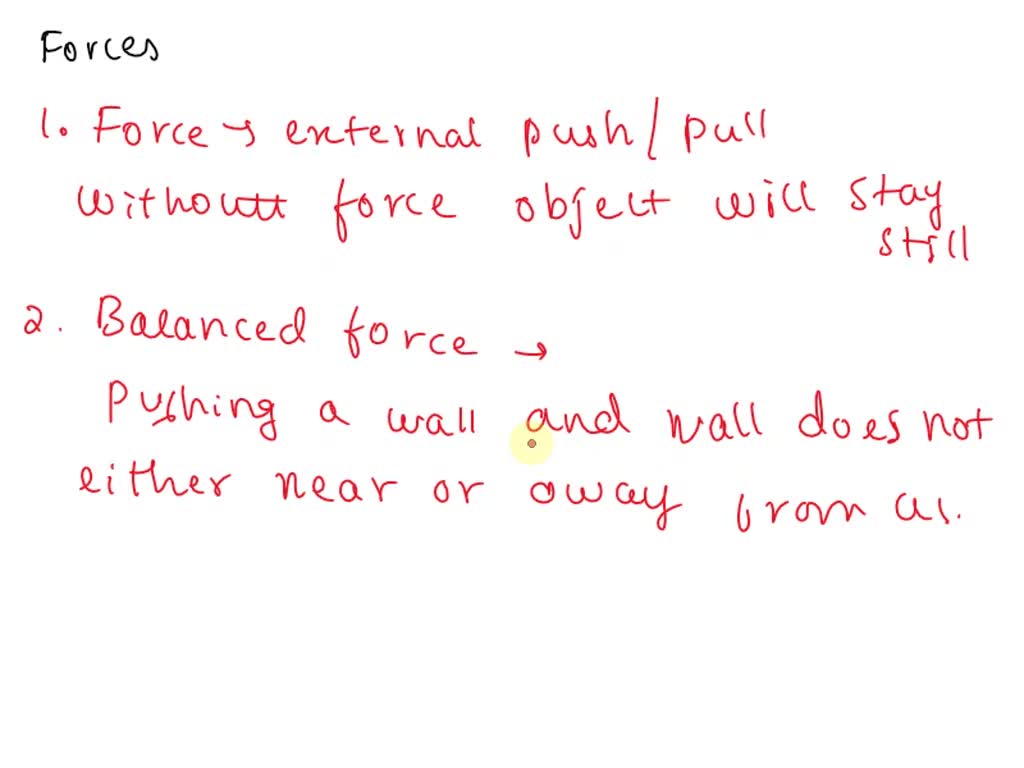 Forces
1. Force → external push/pull
without force object will stay
still
2. Balanced force →
Pushing a wall and wall does not
either near or away from us.